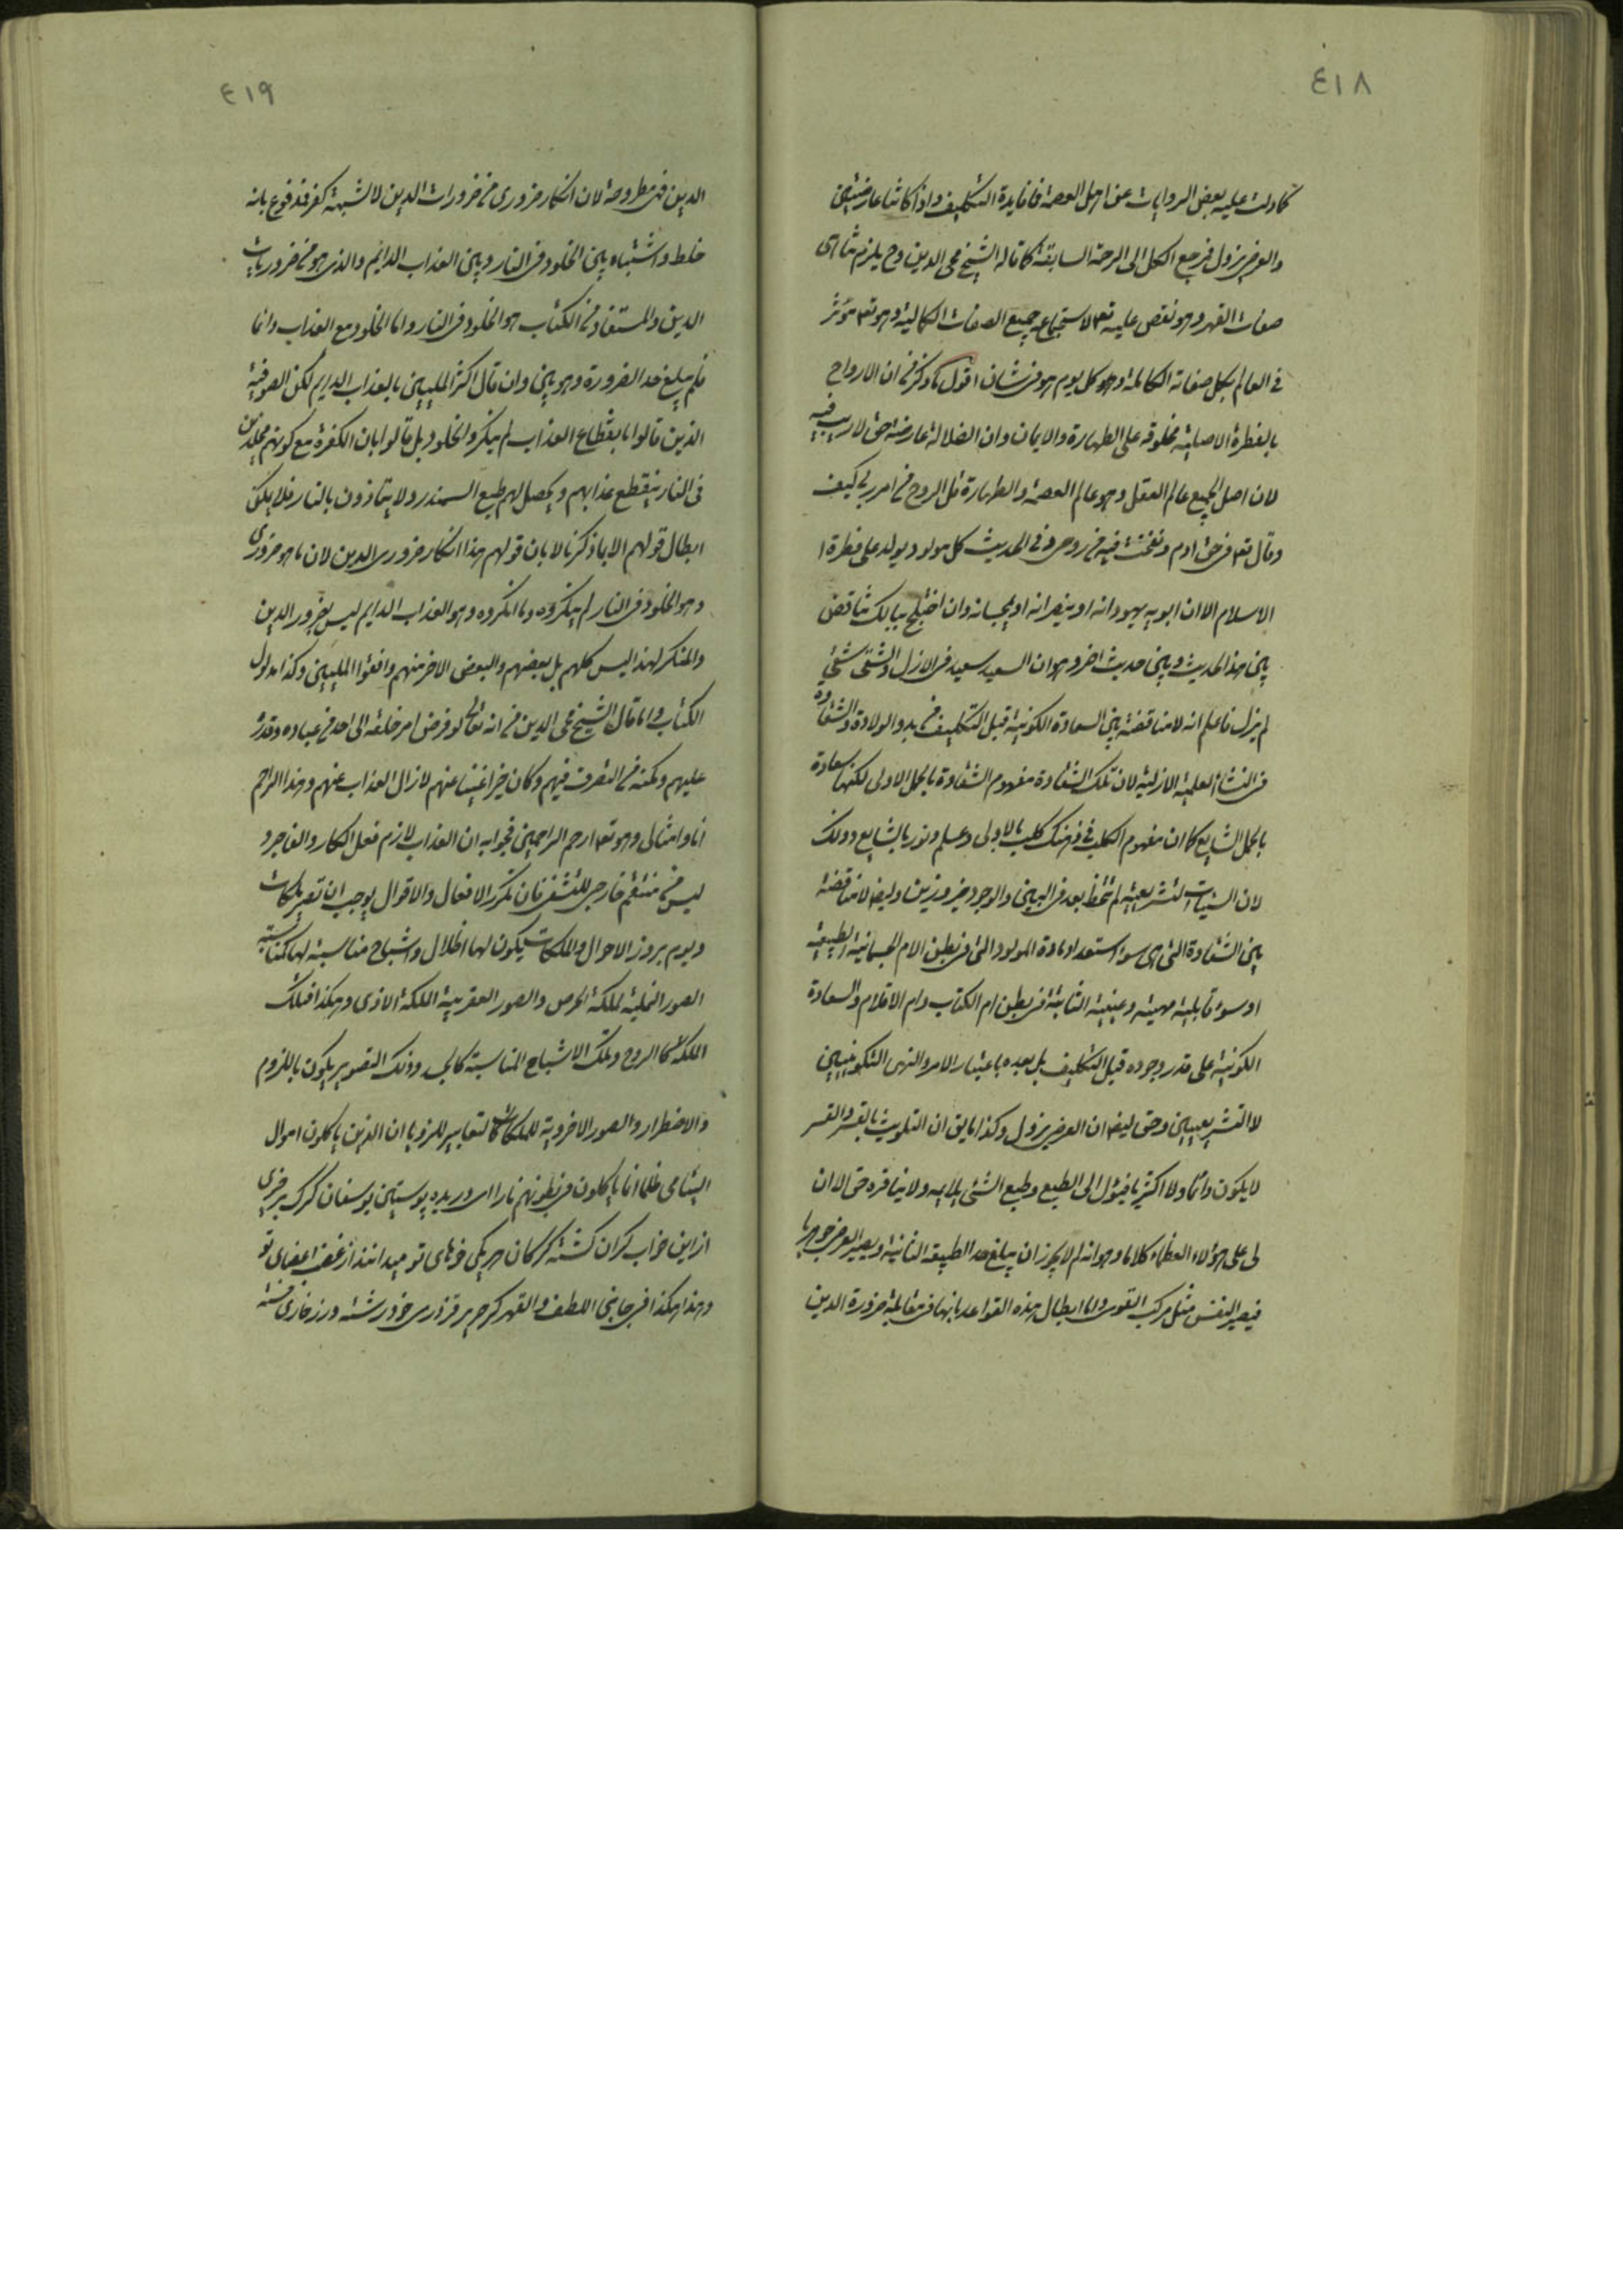 ٤١٨
كما دلت عليه بعض الروايات عن اهل العصمة فما فايدة التكليف واذا كانتا عارضيتين
والعرضي يزول فرجع الكل الى الرحمة السابقة كما قاله الشيخ محى الدين وح يلزم تناهى
صفات القهر وهو نقص عليه تعم لاستجماعه جميع الصفات الكمالية وهو تعم مؤثر
فى العالم بكل صفاته الكاملة وهو كل يوم هو فى شان اقول ما ذكر من ان الارواح
بالفطرة الاصلية مخلوقه على الطهارة والايمان وان الضلالة عارضة حق لا ريب فيه
لان اصل الجميع عالم العقل وهو عالم العصمة والطهارة قل الروح من امر ربى كيف
وقال تعم فى حق ادم ونفخت فيه من روحى وفى الحديث كل مولود يولد على فطرة ا
الاسلام الا ان ابويه يهودانه او ينصرانه او يمجسانه وان اختلج ببالك تناقض
بين هذا الحديث وبين حديث اخر وهو ان السعيد سعيد فى الازل والشقى شقى
لم يزل فاعلم انه لا مناقضة بين السعادة الكونية قبل التكليف من بدو الولادة والشقاوة
فى النشأة العلمية الازلية لان تلك الشقاوة مفهوم الشقاوة بالحمل الاولى لكنها سعادة
بالحمل الشايع كما ان مفهوم الكلب فى ذهنك كلب بالاولى وعلم ونور بالشايع وذلك
لان السيئات التشريعية لم تتخط بعد فى البين والوجود خير وزين وليضم لا مناقضة
بين الشقاوة التى هى سوء استعداد مادة المولود التى فى بطن الام الجسمانية الطبيعية
او سوء قابلية مهيته وعينيته الثابتة فى بطن ام الكتاب وام الاقلام والسعادة
الكونية على قدر وجوده قبل التكليف بل بعده باعتبار الامر والنهى التكوينيين
لا التشريعيين وحق ليضم ان العرضى يزول وكذا ما يق ان التلويث بالقسر والقسر
لا يكون دائما ولا اكثريا فيئول الى الطبع وطبع الشئ يلايمه ولا ينافره حق الا ان
لى على هؤلاء العظماء كلاما وهو انه لم لا يجوز ان يبلغ حد الطبيعة الثانية ويصير العرضى جوهريا
فيصير النفس مثل مركب القوى واما ابطال هذه القواعد بانها فى مقابلة ضرورة الدين
٤١٩
الدين فهى مطروحة لان انكار ضرورى من ضرورات الدين لا شبهة كفر فمدفوع بانه
خلط واشتباه بين الخلود فى النار وبين العذاب الدائم والذى هو من ضروريات
الدين والمستفاد من الكتاب هو الخلود فى النار واما الخلود مع العذاب دائما
فلم يبلغ حد الضرورة وهو بين وان قال اكثر المليين بالعذاب الدايم لكن الصوفية
الذين قالوا بانقطاع العذاب لم ينكروا الخلود بل قالوا بان الكفرة مع كونهم مخلدين
فى النار ينقطع عذابهم ويحصل لهم طبع السمندر ولا يتاذون بالنار فلا يمكن
ابطال قولهم الا بما ذكرنا لا بان قولهم هذا انكار ضرورى الدين لان ما هو ضرورى
وهو الخلود فى النار لم ينكروه وما انكروه وهو العذاب الدايم ليس بضرور الدين
والمنكر لهذا ليس كلهم بل بعضهم والبعض الاخر منهم وافقوا المليين وكذا مدلول
الكتاب واما قال الشيخ محى الدين من انه تعالى لو فوض امر خلقه الى احد من عباده وقدره
عليهم ومكنه من التصرف فيهم وكان خيرا غنيا عنهم لازال العذاب عنهم وهذا الراحم
انا وامثالى وهو تعم ارحم الراحمين فجوابه ان العذاب لازم فعل الكفار والفاجر و
ليس من منتقم خارجى للتشفى فان تكرر الافعال والاقوال يوجب ان تصير ملكات
ويوم بروز الاحوال والملكات يكون لها اظلال واشباح مناسبة لها كمناسبة
الصور النملية لملكة الحرص والصور العقربية الملكة الاذى وهكذا فتلك
الملكة كما الروح وتلك الاشباح المناسبة كالبدن وذلك التصوير يكون باللزوم
والاضطرار والصور الاخروية للملكات كالتعابير للرؤيا ان الذين ياكلون اموال
اليتامى ظلما انما ياكلون فى بطونهم نارا اى دريده پوستين يوسفان كرك بر خيزى
از اين خواب كران كشته كركان هر يكى خوهاى تو ميدرانند از غضب اعضاى تو
وهذا هكذا فى جانبى اللطف والقهر كر حرير قز درى خود رشته ور ز خارى خسته